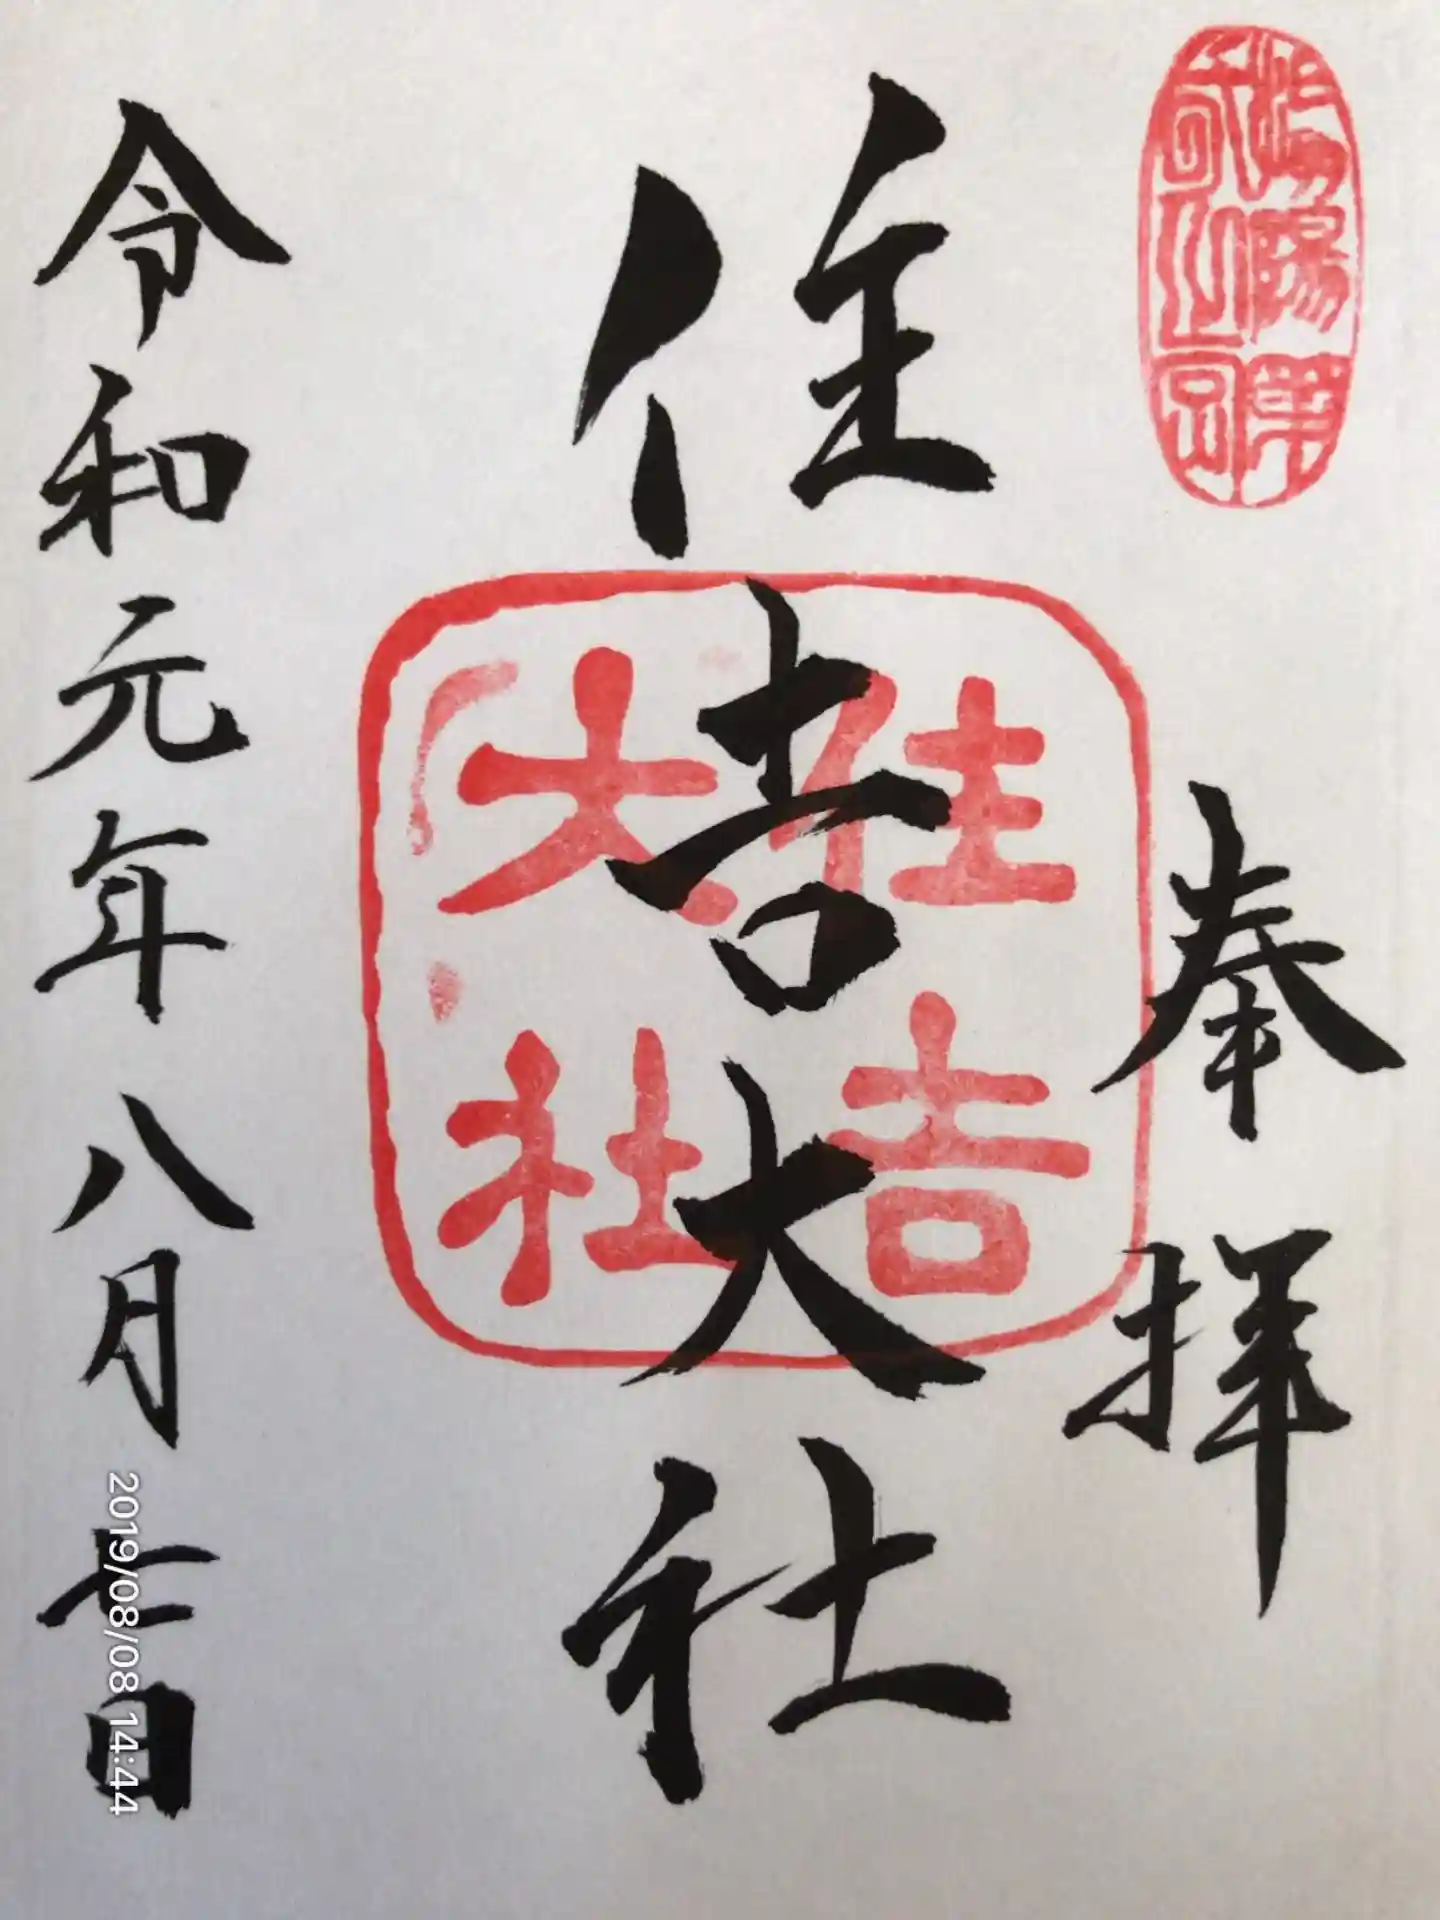 奉拝
住吉大社
住吉
大社
令和元年八月七日
2019/08/08 14:44